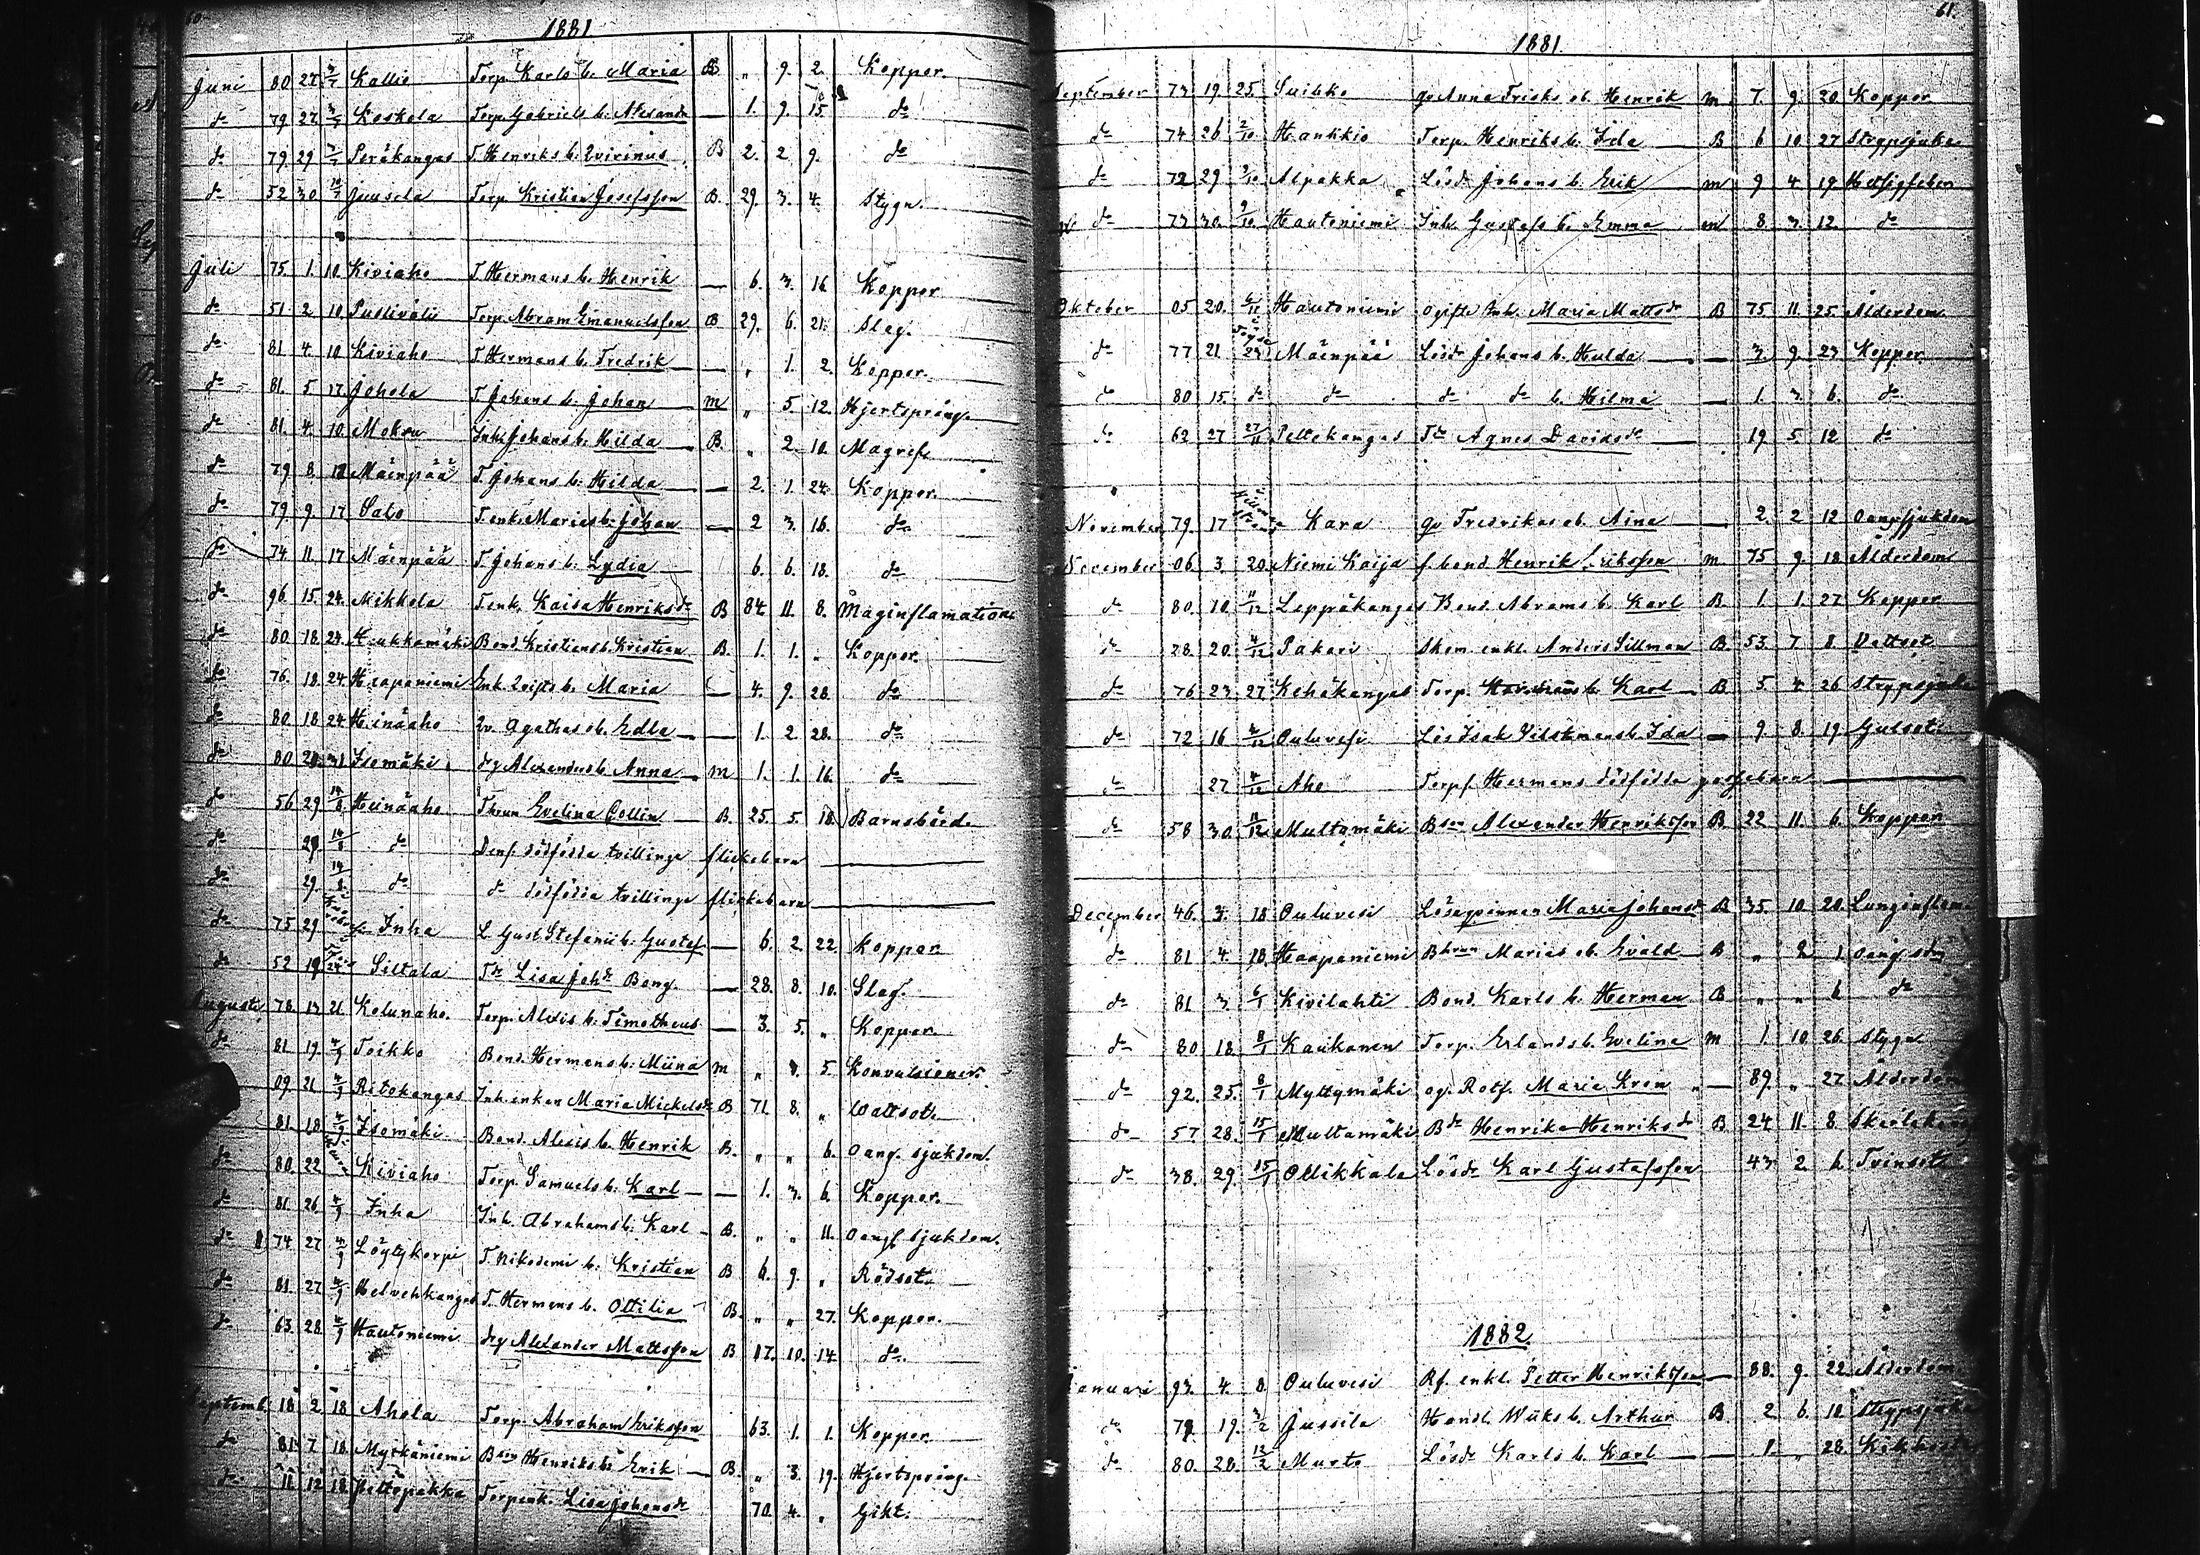 60.
1881
Juni 80 27 3/7 Kallio Torp Karls b. Maria B " 9. 2. Koppor.
do 79. 27 3/7 Koskela Torp. Gabriels b. — 1. 9. 15. do
do 79. 29 3/7 Peräkangas T. Henriks b. Qvirinus B 2. 2 9. do
do 52 30 10/7 Juusela Torp. Kristian Josefsson B. 29. 3. 4. Stygn.
Juli 75. 1. 10. Kiviaho T. Hermans b. Henrik — 6. 3. 16 Koppor
do 51. 2 10. Torp. Abram Emanuelsson B 29. 6. 21. Slag.
do 81 4. 10 Kiviaho T. Hermans b. Fredrik — " 1. 2 Koppor.
do 81. 5. 17. Johola T. Johans b. Johan m " 5. 12. Hjertspång.
do 81. 4. 10 Inh. Johans b. Hilda B. " 2. 10. Magref.
do 79 8. Mäenpää T. Johans b. Hilda — 2. 1. 24. Koppor.
do 79. 9. 17 Salo T. enk. Marias b. Johan — 2 3. 16. do
do 74. 11. 17 Mäenpää T. Johans b. Lydia — 6. 6. 18. do
do 96. 15. 24. Mikkola T. enk. Kaisa Henriksdr B 84. 11. 8. Maginflamation
do 80. 18. 24. Bond. Kristians b. Kristian B. 1. 1. " Koppor.
do 76. 18. 24 Haapaniemi Inh. b. Maria 4. 9. 28. do
do 80. 18 24 Heinäaho Qv. Agathas ob. Edla — 1. 2 28. do
do 80. 31 Isomäki Alexanders b. Anna m 1. 1. 16. do
do 56 29 14/8 Heinäaho Thrun Evelina Collin B. 25. 5. 18. Barnsbörd.
do 29 14/8 do Dens. dödfödda tvillinge flickebarn
do 29. 14/8 do do dödfödda tvillinge flickebarn
do 75 29 Inha L. Gust. Stefanii b. Gustaf — 6. 2. 22. Koppor
do 52 Siltala Tdr Lisa Johdr Bong. — 28. 8. 10. Slag.
Augusti 78. 21. Kolunaho. Torp. Alexis b. Timotheus — 3. 5. " Koppor
do 81 19. 4/9 Toikko Bond. Hermans b. Miina m " 5. Konvulsioner.
09. 21 4/9 Ritokangas Inh. enkan Maria Mickelsdr B 71. 8. " Vattsot.
81. 18 4/9 Isomäki Bond. Alexis b. Henrik B. " " 6. Oang. sjukdom.
do 80. 22 Kiviaho Torp. Samuels b. Karl — 1. 3. 6. Koppor.
do 81 26 4/9 Inha Inh. Abrahams b. Karl B. " " 11. Oang sjukdom.
do 74. 27 4/9 Löytykorpi T. Nikodemi b. Kristian B 6. 9. " Rödsot.
do 81. 27 4/9 T. Hermans b. Ottilia B. " " 27. Koppor.
do 63. 28 4/9 Hautoniemi Alexander Mattsson B 17. 10. 14. do
Septemb. 18. 2 18 Ahola Torp. Abraham Eriksson 63. 1. 1. Koppor.
do 81. 7. 18. Myrkäniemi Henriks b. Erik B. " 3. 19. Hjertspång
do 11 12 18. Peltopakka Torpenk. Lisa Johansdr 70. 4. " Gikt.
61.
1881.
September 73 19. 25. Suikko Qv. Anna Friska ob. Henrik m 7. 9. 20 Koppor
do 74 26 2/10 Hankkio Torp. Henriks b. Ida B 6 10 27 Strypsjuka
do 72 29 Alpakka Lösdr Johans b. Erik m 9 4. 19
do 73 30. 9/10. Hautoniemi Inh. Gustafs b. Emma m 8. 3. 12. do
Oktober 05 20. Hautoniemi ogifte Inh. Maria Mattsdr B 75 11. 25. Ålderdom
do 77 21 Mäenpää Lösdr Johans b. Hulda — 3. 9. 23 Koppor
do 80 15. do do do do b. Hilma — 1. 3. 6. do
do 62 27 27/11 Peltokangas Tdr Agnes Davidsdr 19 5. 12 do
November 79. 17 Kara qv Fredrikas ob. Aina — 2. 2 12 Oang sjukdom
November 06 3. 20. Niemi Kaija f. bond. Henrik Eriksson m 75 9. 18. Ålderdom
do 80. 10. 11/12 Leppäkangas Bond. Abrams b. Karl B. 1. 1. 27 Koppor
do 28. 20 4/12 Pakari Skom. enkl. Anders Sillman B 53. 7 8. Vattsot
do 76 23 27 Kehäkangas Torp. b. Karl B. 5 4. 26 Strypsjuka
do 72 16 4/12 Ouluvesi Lös Isak b. Ida — 9. 8. 19. Gulsot.
do 27 4/12 Aho Torpf. Hermans dödfödda gossebarn
do 58. 30. 11/12 Multamäki Bson Alexander Henriksson B 22 11. 6. Koppor
December 46. 3. 18 Ouluvesi Lösa qvinnan Maria Johansdr B 35. 10 20. Lunginflam
do 81 4. 18. Haapaniemi Bhrun Marias ob. Evald B " 2 1. Oang. sdm
do 81 3. 6/1 Kivilahti Bond. Karls b. Herman B " " 6. do
do 80 18. 8/1 Kaukonen Torp. Erlands b. Evelina m 1 10 26. Stygn
do 92. 25. 8/1 Myllymäki og. Rotf. Maria Kron — 89. " 27 Ålderdom
do 57 28. 15/1 Multamäki Bdr Henrika Henriksdr B. 24. 11. 8.
do 38. 29. 15/1 Ollikkala Lösdr Karl Gustafsson 43. 2 6. Tvinsot
1882
Januari 93. 4. 8. Ouluvesi Rf. enkl. Petter Henriksson — 88. 9. 22. Ålderdom
do 79 19. 3/2 Jussila Handl. Wiiks b. Arthur B 2 6. 18 Strypsjuka
do 80. 28. 12/2 Murto Lösdr Karls b. Karl — 1. " 28.